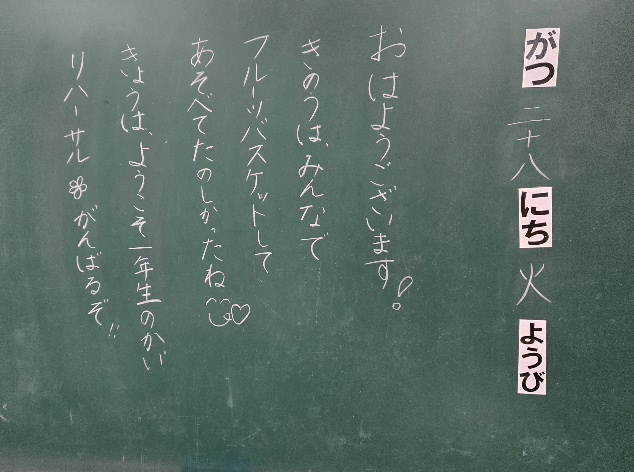 がつ二十八にち火ようび
おはようございます!
きのうは、みんなで
フルーツバスケットして
あそべてたのしかったね
きょうは、ようこそ一年生のかい
リハーサルがんばるぞ!!